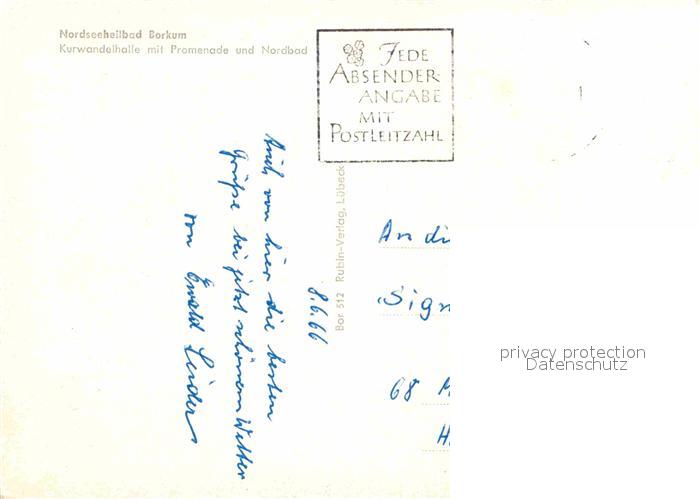 Nordseeheilbad Borkum
Kurwandelhalle mit Promenade und Nordbad
JEDE
ABSENDER-
ANGABE
MIT
POSTLEITZAHL
Bor 512 Rubin-Verlag, Lübeck
8.6.66
Auch von hier die besten
Grüße bei jetzt schönem Wetter
von Ewald Leiders
An di
Sign
68
H
privacy protection
Datenschutz